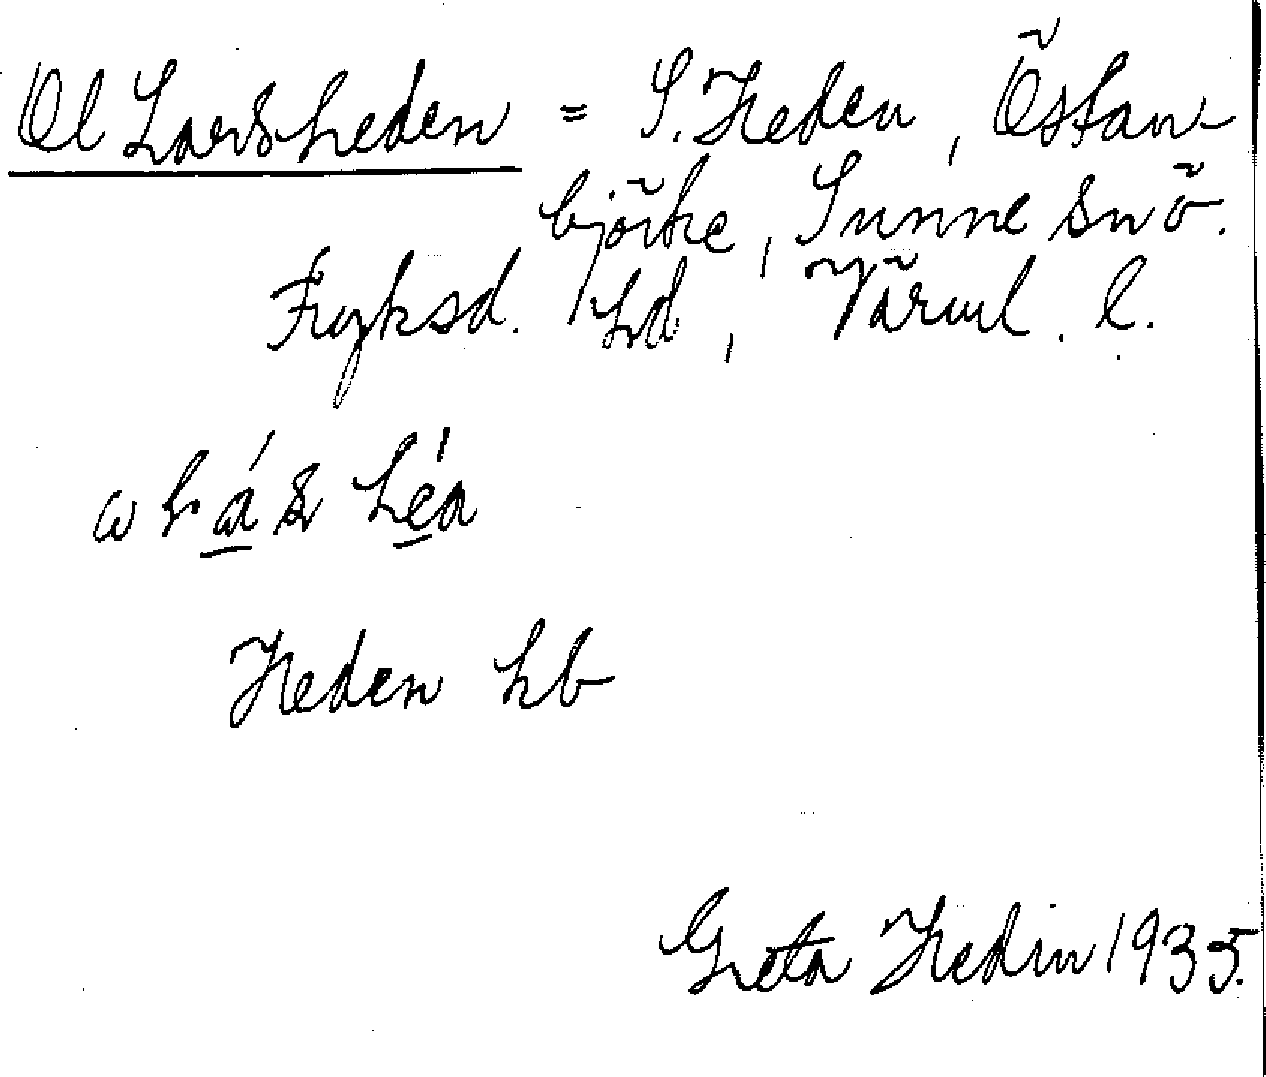 Ol Larsheden = S. Heden, Östan-
björke, Sunne snö.
Fryksd. hd, Värml. l.
Heden hb
Greta Hedin 1935.